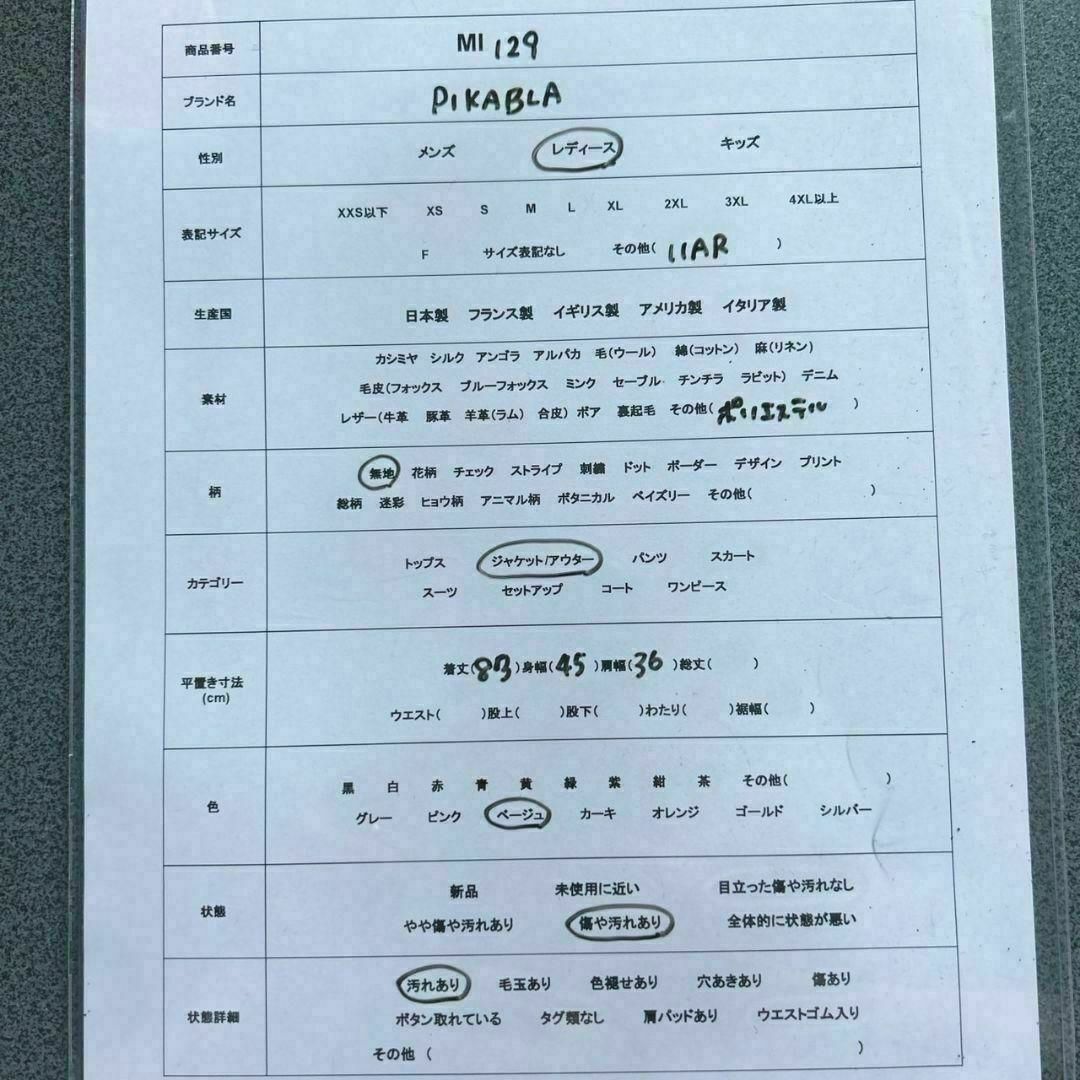 商品番号 MI 129
ブランド名 PIKABLA
性別 メンズ レディース キッズ
XXS以下 XS S M L XL 2XL 3XL 4XL以上
表記サイズ
F サイズ表記なし その他( 11AR )
生産国 日本製 フランス製 イギリス製 アメリカ製 イタリア製
カシミヤ シルク アンゴラ アルパカ 毛(ウール) 綿(コットン) 麻(リネン)
毛皮(フォックス ブルーフォックス ミンク セーブル チンチラ ラビット) デニム
素材
レザー(牛革 豚革 羊革(ラム) 合皮) ボア 裏起毛 その他( ポリエステル )
無地 花柄 チェック ストライプ 刺繍 ドット ボーダー デザイン プリント
柄
総柄 迷彩 ヒョウ柄 アニマル柄 ボタニカル ペイズリー その他( )
トップス ジャケット/アウター パンツ スカート
カテゴリー
スーツ セットアップ コート ワンピース
着丈(87)身幅(45)肩幅(36 )総丈( )
平置き寸法
(cm)
ウエスト( )股上( )股下( )わたり( )裾幅( )
黒 白 赤 青 黄 緑 紫 紺 茶 その他( )
色
グレー ピンク ベージュ カーキ オレンジ ゴールド シルバー
新品 未使用に近い 目立った傷や汚れなし
状態
やや傷や汚れあり 傷や汚れあり 全体的に状態が悪い
汚れあり 毛玉あり 色褪せあり 穴あきあり 傷あり
状態詳細 ボタン取れている タグ類なし 肩パッドあり ウエストゴム入り
その他 ( )